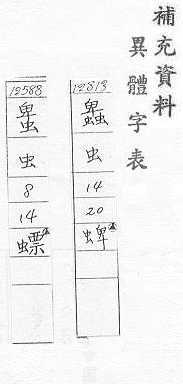 補充資料
異體字表
12813
虫
14
20
蜱
12588
虫
8
14
螵